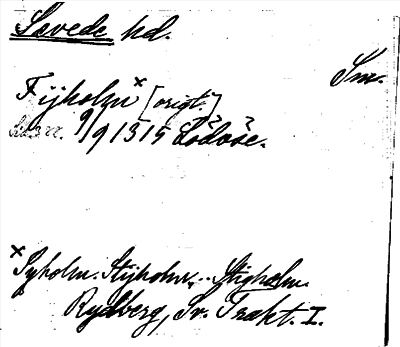 Sevede hd.
Sm.
Fijholm× [origt.]
9/9 1315 Lödöse.
× Syholm. Stijholm, .. Stigholm.
Rydberg, Sv. Trakt. I.